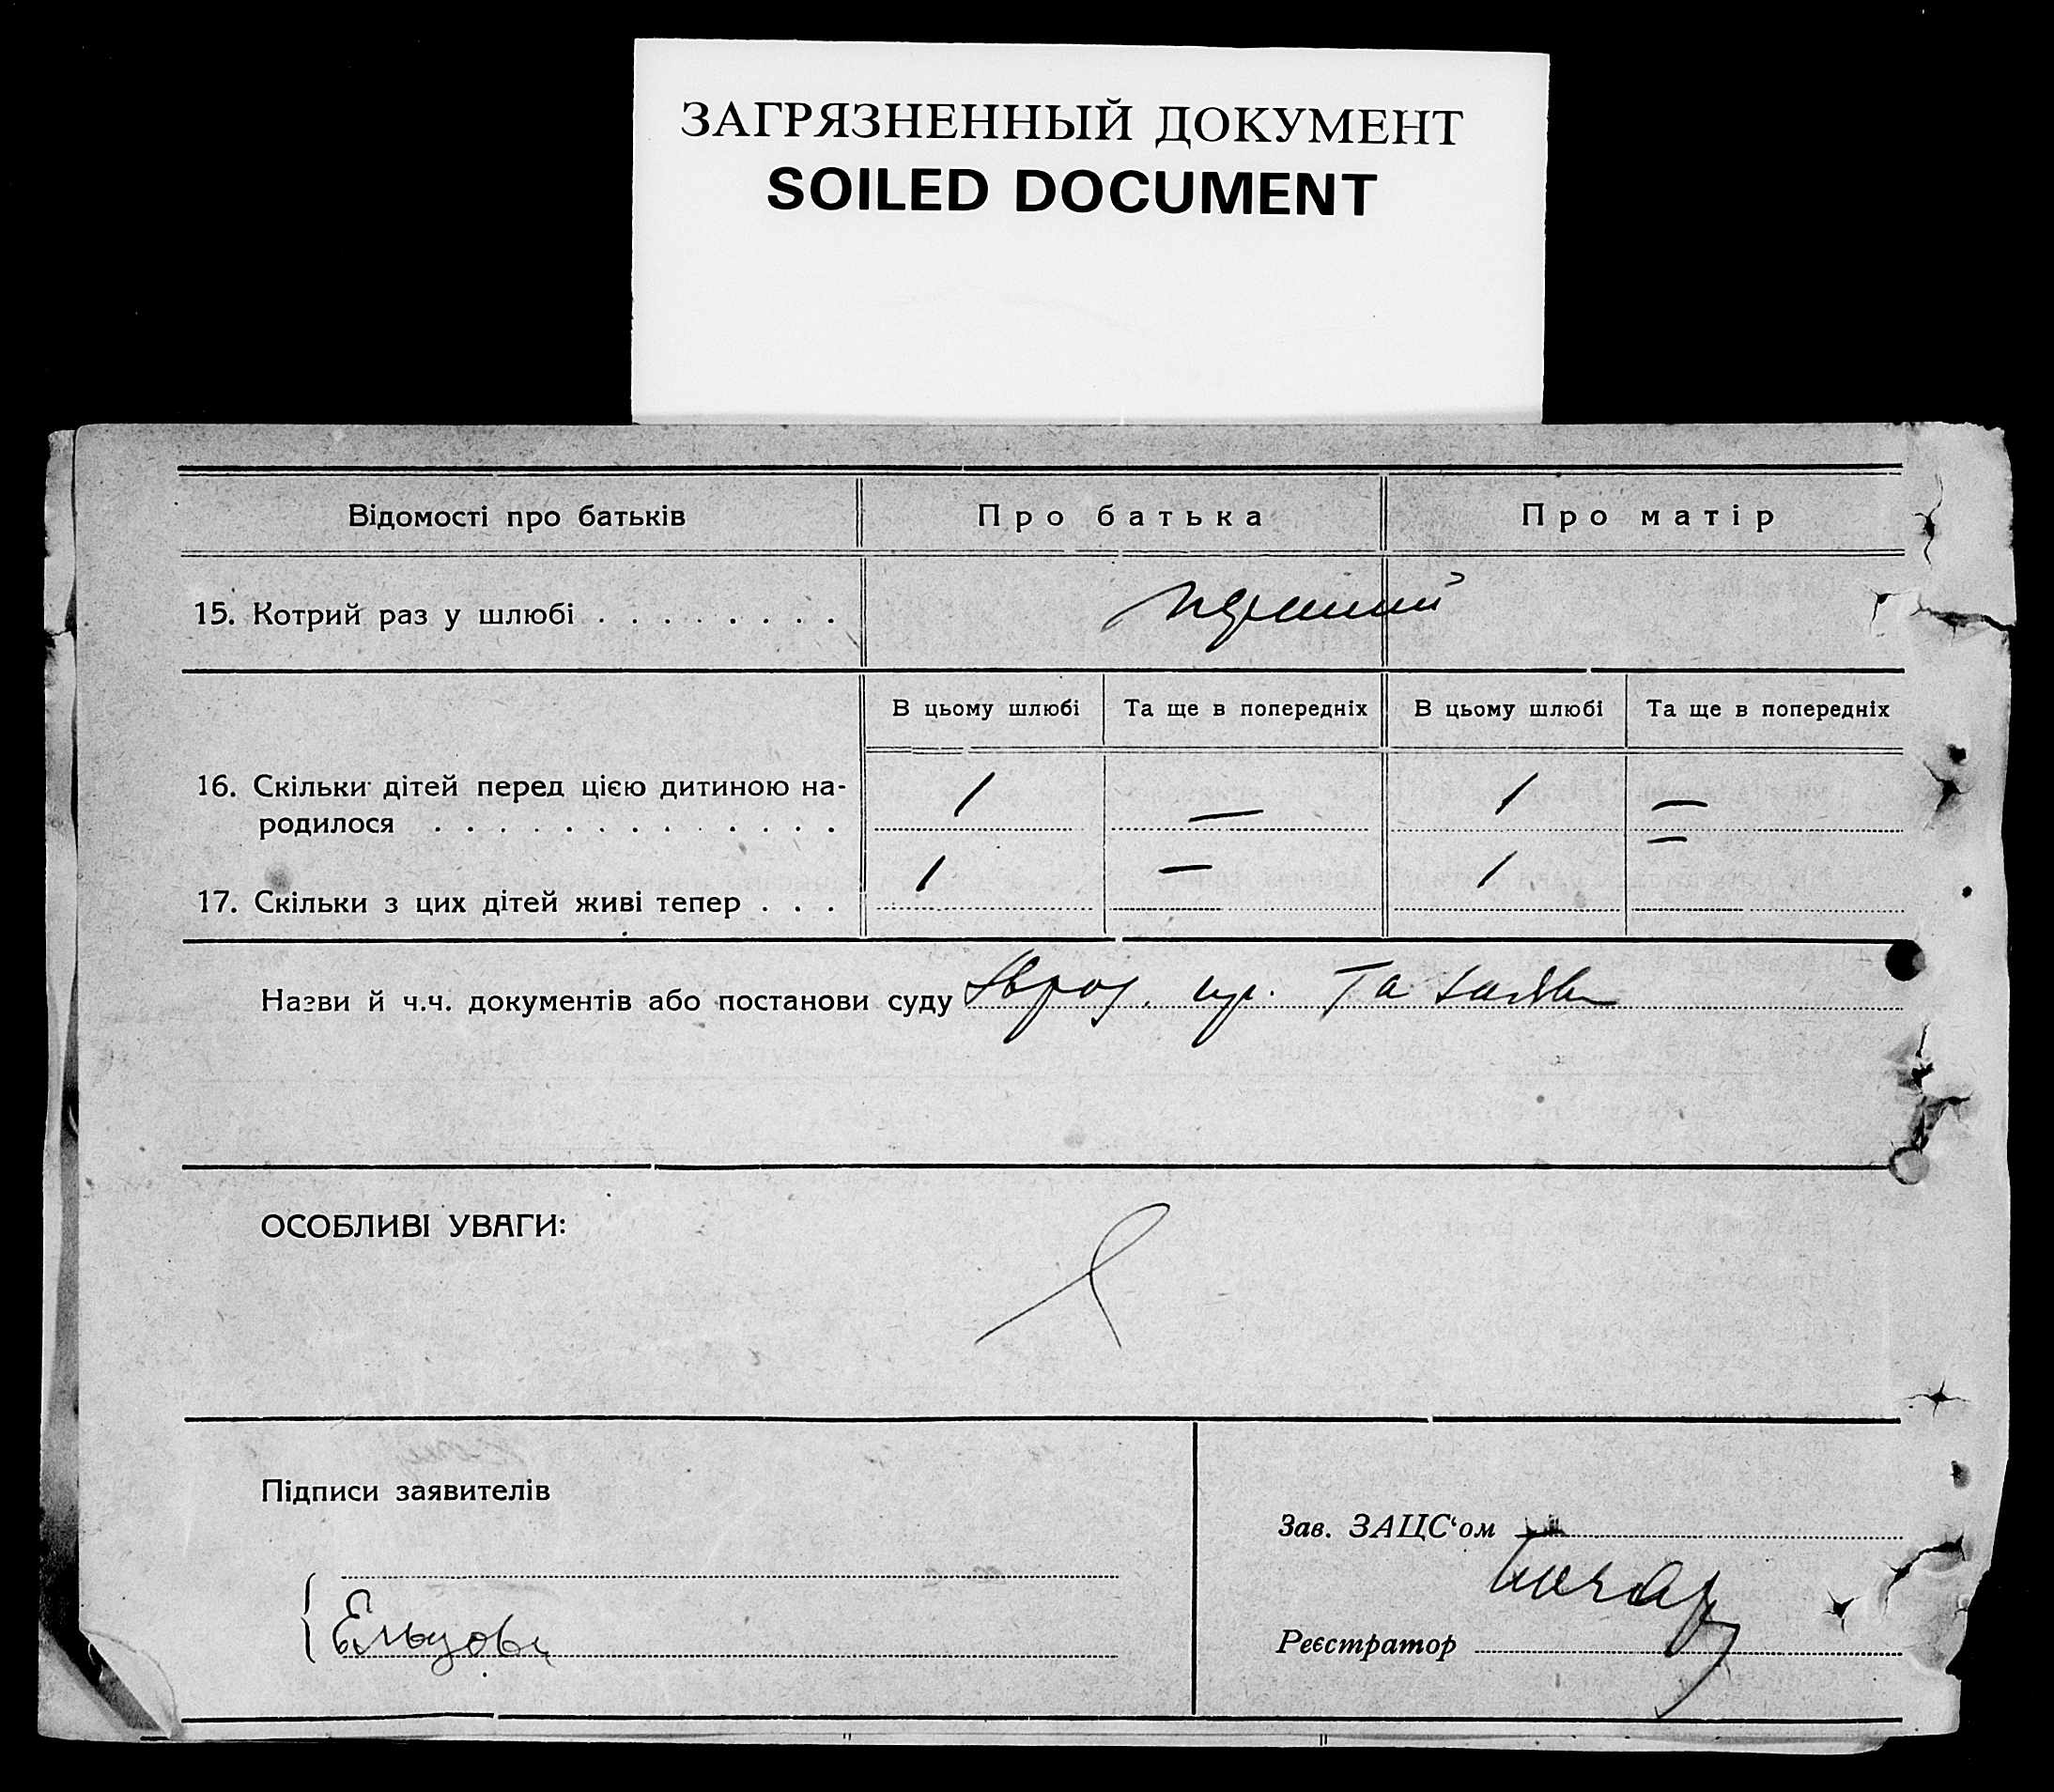 ЗАГРЯЗНЕННЫЙ ДОКУМЕНТ
SOILED DOCUMENT
Відомості про батьків Про батька Про матір
15. Котрий раз у шлюбі . . . . . . . . перший
В цьому шлюбі Та ще в попередніх В цьому шлюбі Та ще в попередніх
16. Скільки дітей перед цією дитиною на-
родилося . . . . . . . . . . . . . 1 — 1 —
17. Скільки з цих дітей живі тепер . . . 1 — 1 —
Назви й ч.ч. документів або постанови суду та
ОСОБЛИВІ УВАГИ:
Підписи заявителів
Зав. ЗАЦС‘ом
Ельцова
Реєстратор